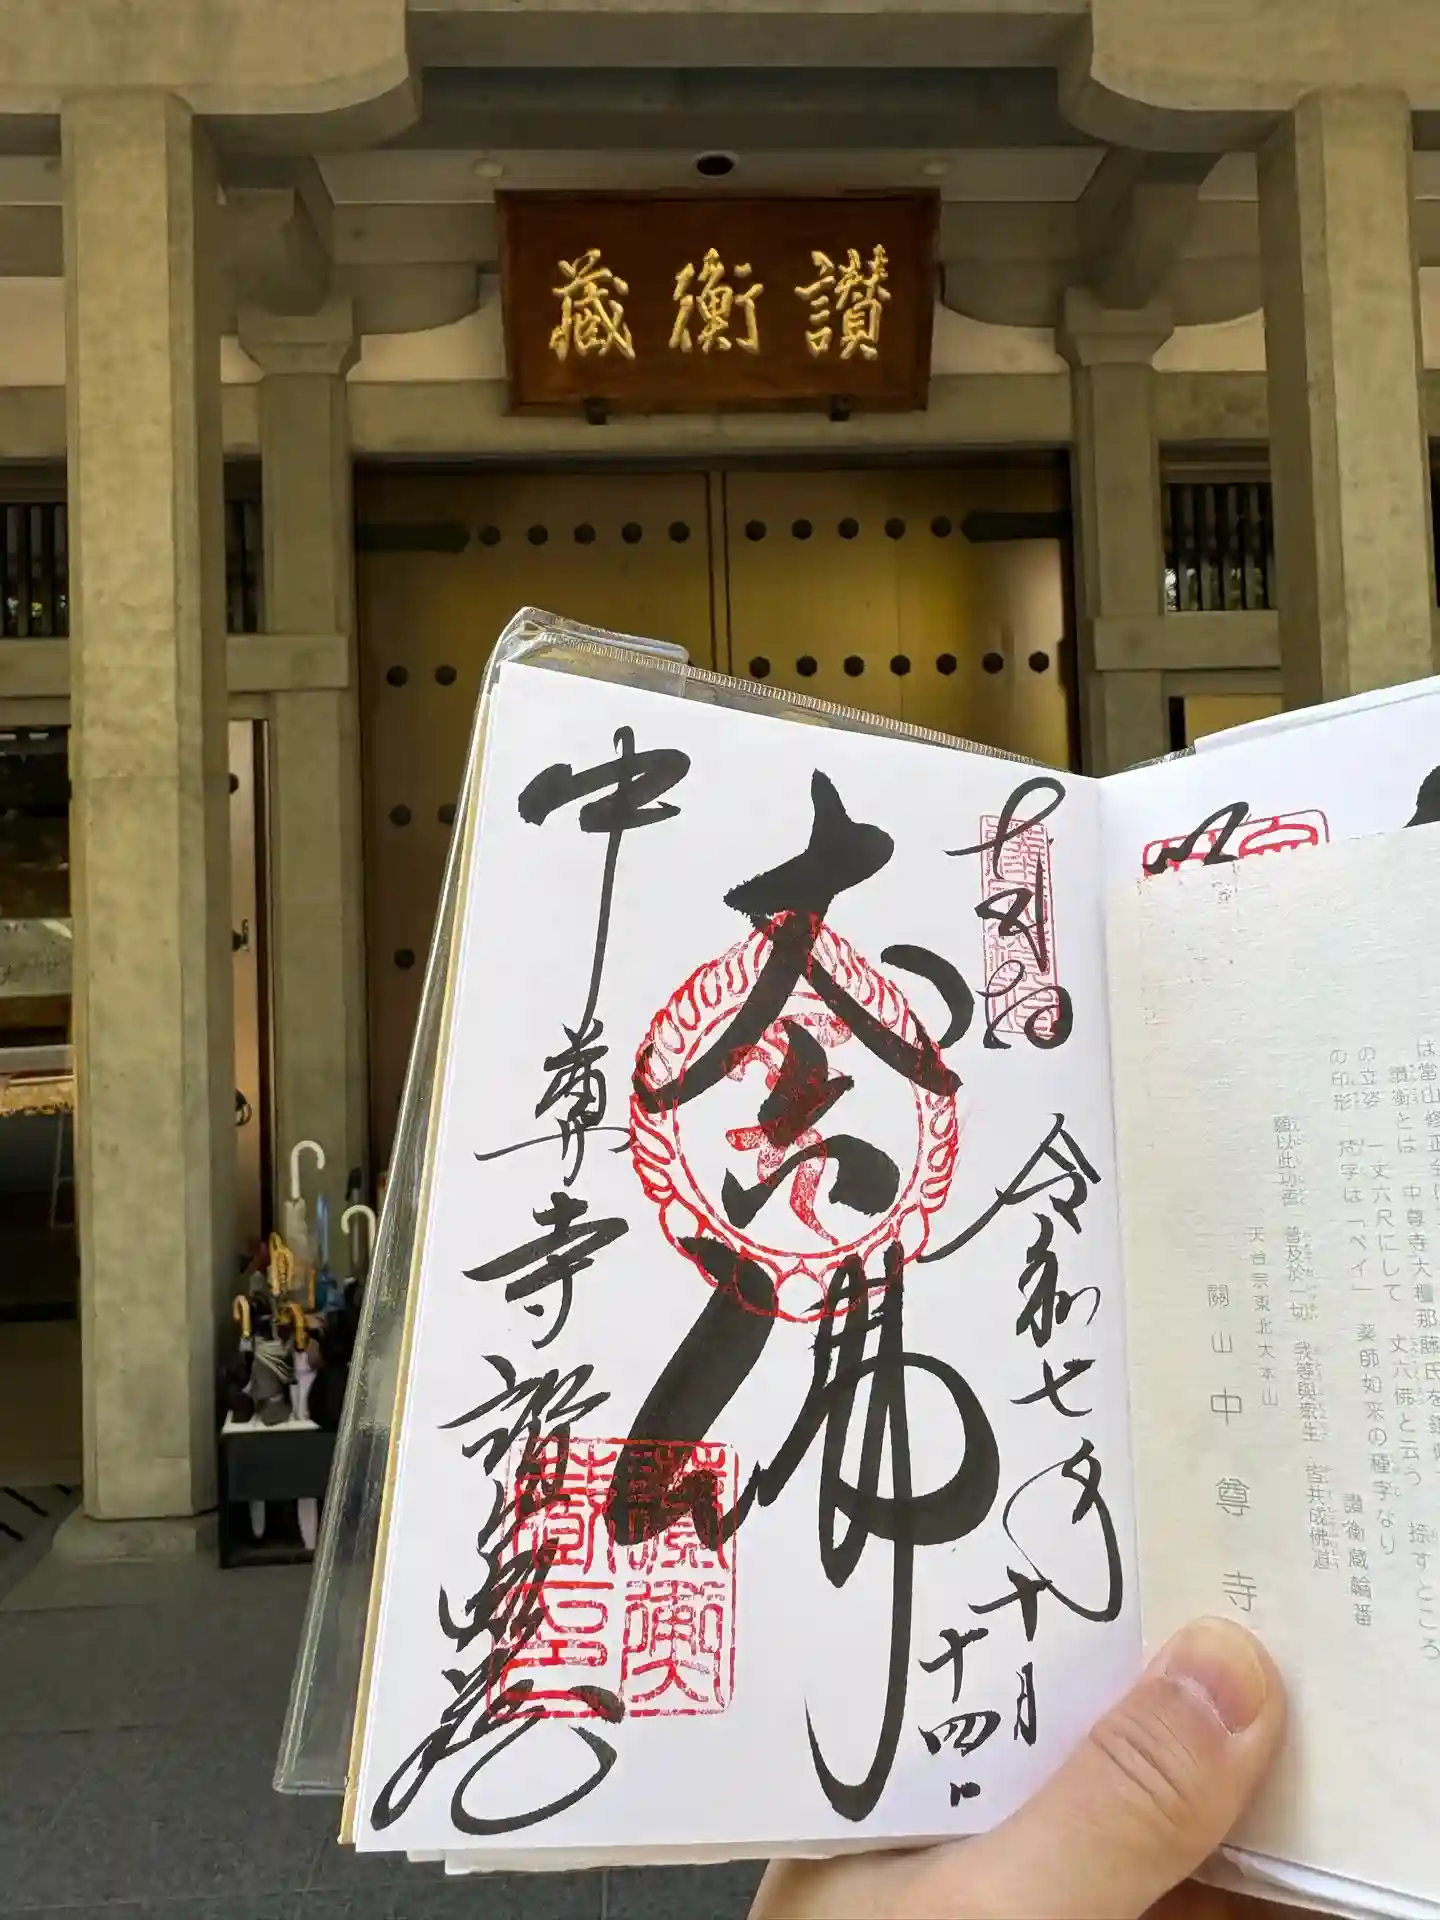 讚衡藏
奉拝
令和七年十月十四日
丈六佛
中尊寺讃衡蔵
讃衡
蔵印
は當山修正会
讃衡とは 中尊寺大檀那藤氏を
の立姿 一丈六尺にして 丈六佛と云う 捺すところ
の印形 梵字は「ベイ」 薬師如来の種字なり 讃衡蔵輪番
願以此功徳 普及於一切 我等與衆生 皆共成佛道
天台宗東北大本山
關山 中尊寺